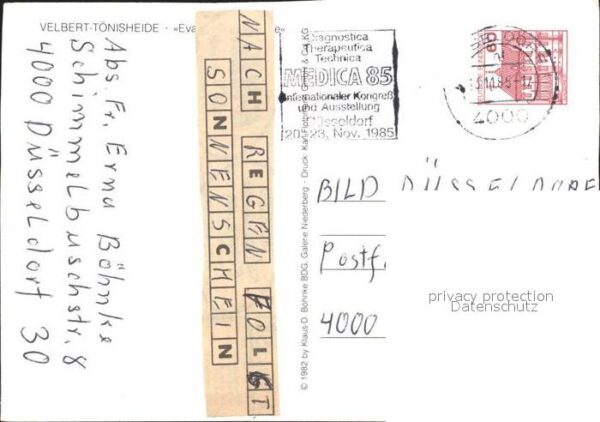 VELBERT-TÖNISHEIDE · »Eva
Abs. Fr. Erna Böhnke
Schimmelbuschstr. 8
4000 Düsseldorf 30
NACH REGEN FOLGT
SONNENSCHEIN
© 1982 by Klaus-D. Böhnke BDG, Galerie Niederberg - Druck:
Diagnostica
Therapeutica
Technica
MEDICA 85
Internationaler Kongreß
und Ausstellung
Düsseldorf
20.-23. Nov. 1985
4000
60
BILD DÜSSELDORF
Postf.
4000
privacy protection
Datenschutz